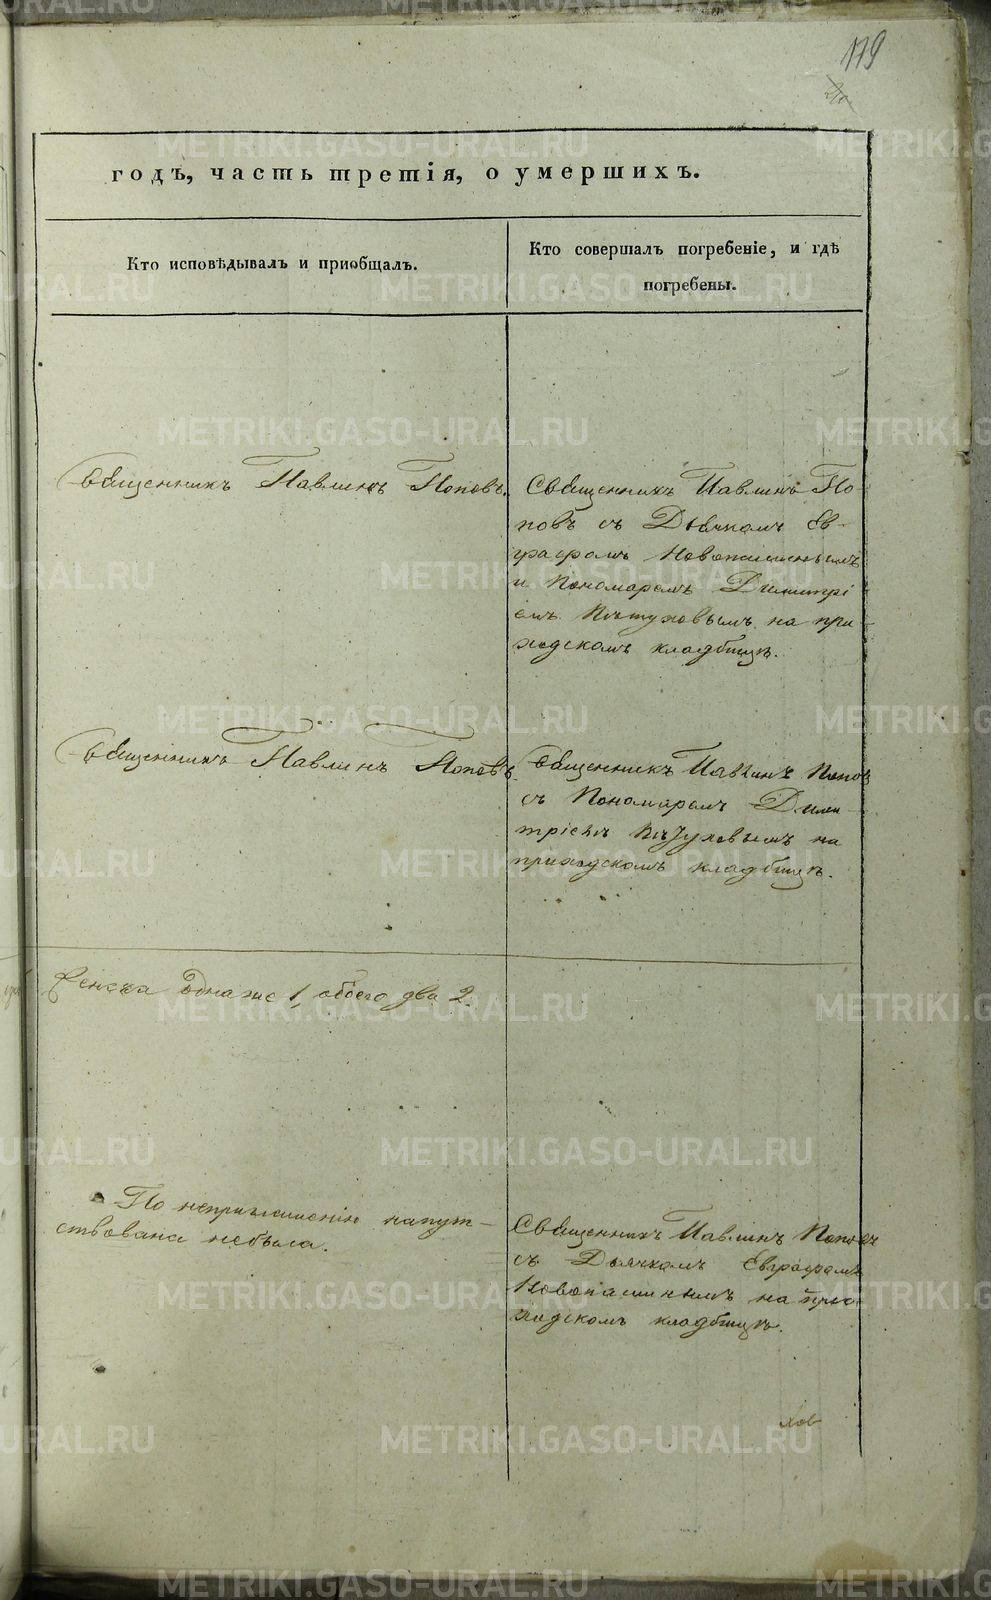 179
годъ, часть третія, о умершихъ.
Кто исповѣдывалъ и пріобщалъ.
Кто совершалъ погребеніе, и гдѣ
погребены.
Священникъ Павлинъ Поповъ.
Священникъ Павлинъ По-
повъ съ Дьячкомъ Ев-
графомъ Новопашеннымъ
и Пономаремъ Димитрі
емъ Пѣтуховымъ на при
ходскомъ кладбищѣ.
Священникъ Павлинъ Поповъ
Священникъ Павлинъ Поповъ
съ Пономаремъ Дими-
тріемъ Пѣтуховымъ на
приходскомъ кладбищѣ.
Женска одна же 1, обоего два 2.
По неприглашенію напут-
ствована небыла.
Священникъ Павлинъ Поповъ
съ Дьячкомъ Евграфомъ
Новопашеннымъ на при-
ходскомъ кладбищѣ.
METRIKI.GASO-URAL.RU